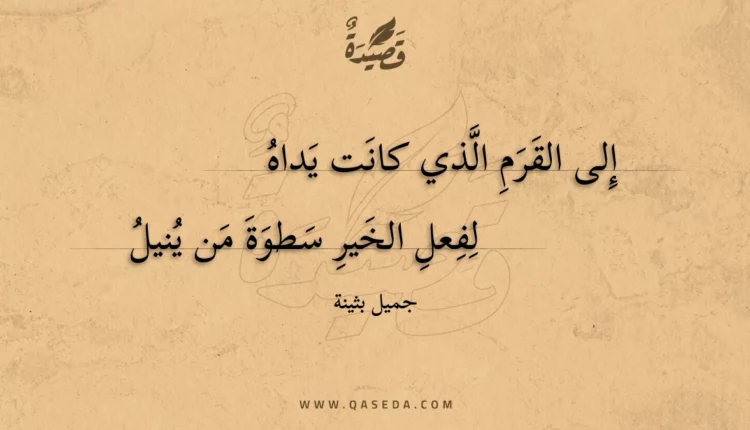 قَصِيدَةٌ
إِلى القَرَمِ الَّذي كانَت يَداهُ
لِفِعلِ الخَيرِ سَطوَةَ مَن يُنيلُ
جميل بثينة
WWW.QASEDA.COM